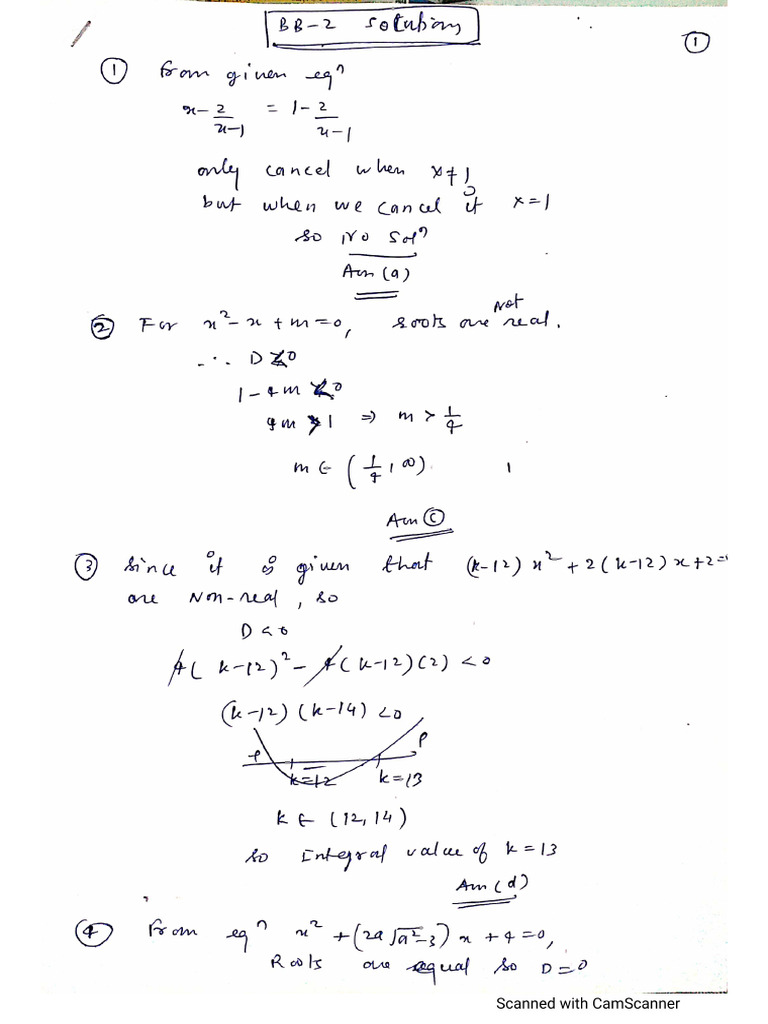 BB-2 Solutions
①
① from given eqⁿ
x - 2/(x-1) = 1 - 2/(x-1)
only cancel when x≠1
but when we cancel it x=1
so No Solⁿ
Ans (a)
② For x² - x + m = 0, roots are Not real.
∴ D < 0
1 - 4m < 0
4m > 1 ⇒ m > 1/4
m ∈ (1/4, ∞)
Ans ⓒ
③ Since it is given that (k-12)x² + 2(k-12)x + 2=0
are Non-real, so
D < 0
4(k-12)² - 4(k-12)(2) < 0
(k-12)(k-14) < 0
k=12 k=13
k ∈ (12, 14)
so Integral value of k = 13
Ans (d)
④ From eqⁿ x² + (2a√a²-3)x + 4 = 0,
Roots are equal so D = 0
Scanned with CamScanner